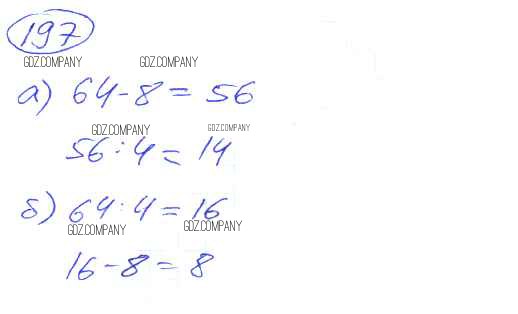 197
GDZ.COMPANY GDZ.COMPANY
а) 64-8=56
GDZ.COMPANY GDZ.COMPANY
56:4=14
б) 64:4=16
GDZ.COMPANY GDZ.COMPANY
16-8=8